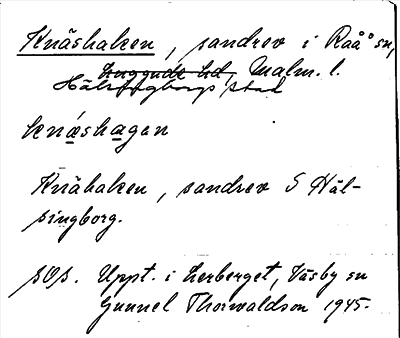 Knäshaken, sandrev i Raå sn,
Luggude hd, Malm. l.
Hälsingborgs stad
knäshagen
Knähaken, sandrev S Häl-
singborg.
sOs. Uppt. i Lerberget, Väsby sn
Gunnel Thorwaldson 1945.